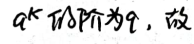 aᵏ 的阶为q，故